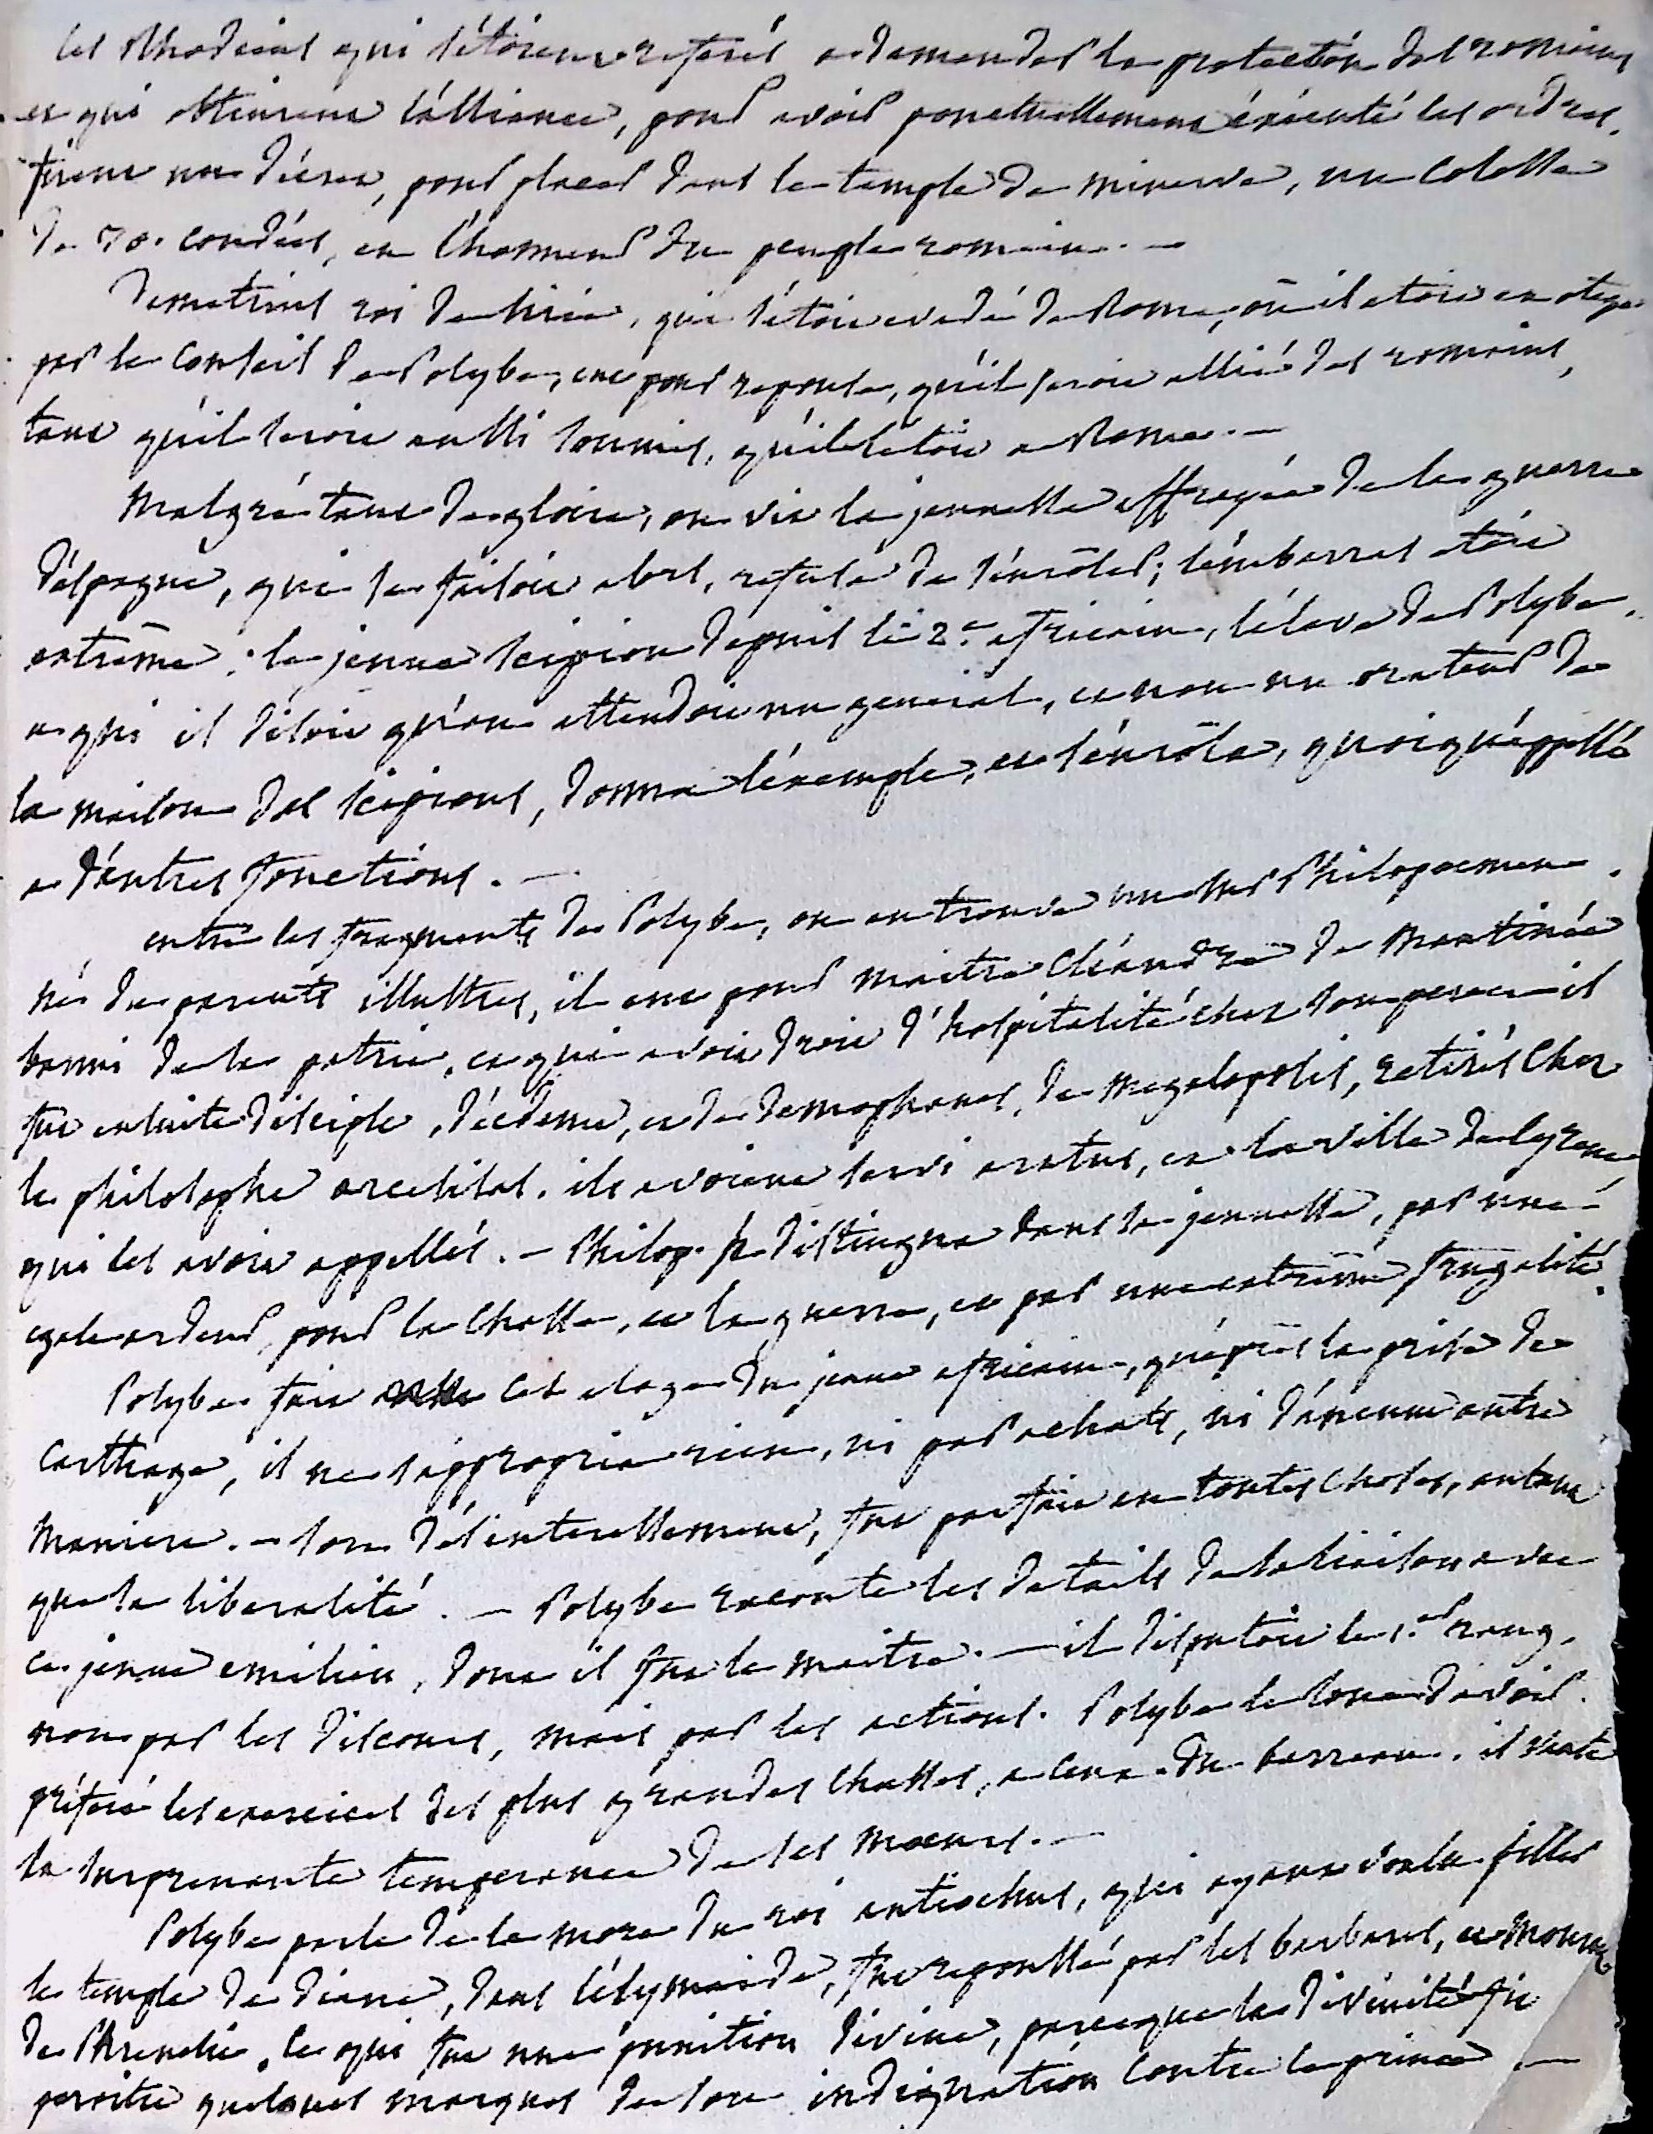 les Rhodiens qui s'étoient refusés a demander la protection des romains
et qui obtinrent l'alliance, pour avoir ponctuellement éxécuté les ordres,
firent un décret, pour placer dans le temple de minerve, un Colosse
de 30. coudées, en l'honneur du peuple romain. —
Demetrius roi de Sirie, qui s'étoit evadé de Rome, où il etoit en otage
par le Conseil de Polybe, eut pour reponse, qu'il seroit allié des romains,
tant qu'il seroit aussi soumis, qu'il l'etoit a Rome. —
Malgré tant de gloire, on vit la jeunesse effrayée de la guerre
d'éspagne, qui se faisoit alors, refuser de s'enrôler; l'embarras etoit
extrême; le jeune Scipion depuis le 2.e africain, l'éleve de Polybe,
a qui il disoit qu'on attendoit un general, et non un orateur de
la maison des Scipions, donna l'éxemple, et s'enrôla, quoiqu'appellé
a d'autres fonctions. —
entre les fragments de Polybe, on en trouve un sur Philopoemen.
né de parents illustres, il eut pour maitre Cléandre de Mantinée
banni de sa patrie, et qui avoit droit d'hospitalité chez son pere. il
fut ensuite disciple, d'écdeme, et de Demophanes, de Megalopolis, retirés Chez
le philosophe arcesilas. ils avoient servi aratus, et la ville de Cyrene,
qui les avoit appellés. — Philop. se distingua dans sa jeunesse, par une
egale ardeur pour la Chasse, et la guerre, et par une extrême frugalité.
Polybe fait cet eloge du jeune africain, qu'après la prise de
Carthage, il ne s'appropria rien, ni par achats, ni d'aucune autre
maniere. — son désinteressement, fut parfait en toutes choses, autant
que sa liberalité. — Polybe raconte les details de sa liaison avec
ce jeune emilien, dont il fut le maitre. — il disputoit le 1.er rang,
non par les discours, mais par les actions. Polybe le loue d'avoir
préféré les exercices des plus grandes Chasses, a ceux du barreau. il vante
la surprenante temperance de ses moeurs. —
Polybe parle de la mort du roi antiochus, qui ayant voulu piller
le temple de diane, dans l'élymaide, fut repoussé par les barbares, et mourut
de Phrenesie, ce qui fut une punition divine, parceque la divinité fit
paroitre quelques marques de son indignation Contre le prince. —